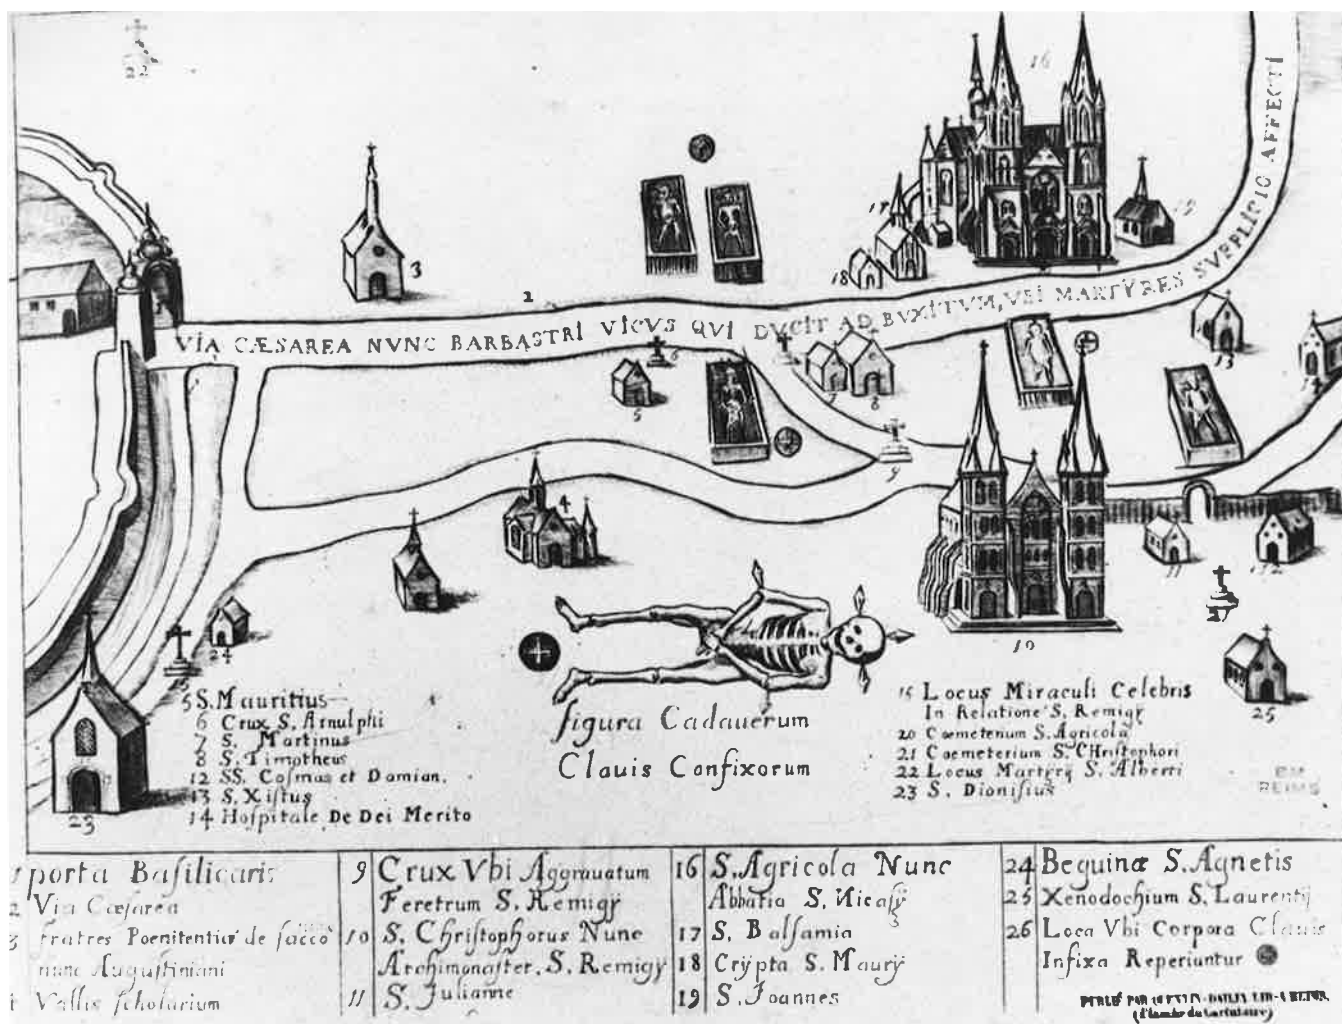 22
16
17
19
18
3
2
VIA CÆSAREA NUNC BARBASTRI VICVS QVI DVCIT AD BVXITVM, VBI MARTYRES SVPPLICIO AFFECTI
6
5
7
8
13
14
9
4
11
12
10
24
15
21
25
23
figura Cadauerum
Clauis Confixorum
5 S. Mauritius
6 Crux S. Arnulphi
7 S. Martinus
8 S. Timotheus
12 SS. Cosmas et Damian.
13 S. Xistus
14 Hospitale De Dei Merito
15 Locus Miraculi Celebris
In Relatione S. Remigy
20 Coemeterium S. Agricola
21 Coemeterium S. CHristophori
22 Locus Martyrij S. Alberti
23 S. Dionisius
BM
REIMS
1 porta Basilicaris
2 Via Cæsarea
3 fratres Poenitentiæ de sacco
nunc Augustiniani
Vallis scholarium
9 Crux Vbi Aggrauatum
Feretrum S. Remigy
10 S. Christophorus Nunc
Archimonaster. S. Remigy
11 S. Julianne
16 S. Agricola Nunc
Abbatia S. Nicasij
17 S. Balsamia
18 Crypta S. Maurij
19 S. Joannes
24 Beguinæ S. Agnetis
25 Xenodochium S. Laurentij
26 Loca Vbi Corpora Clauis
Infixa Reperiuntur
PUBLIÉ PAR